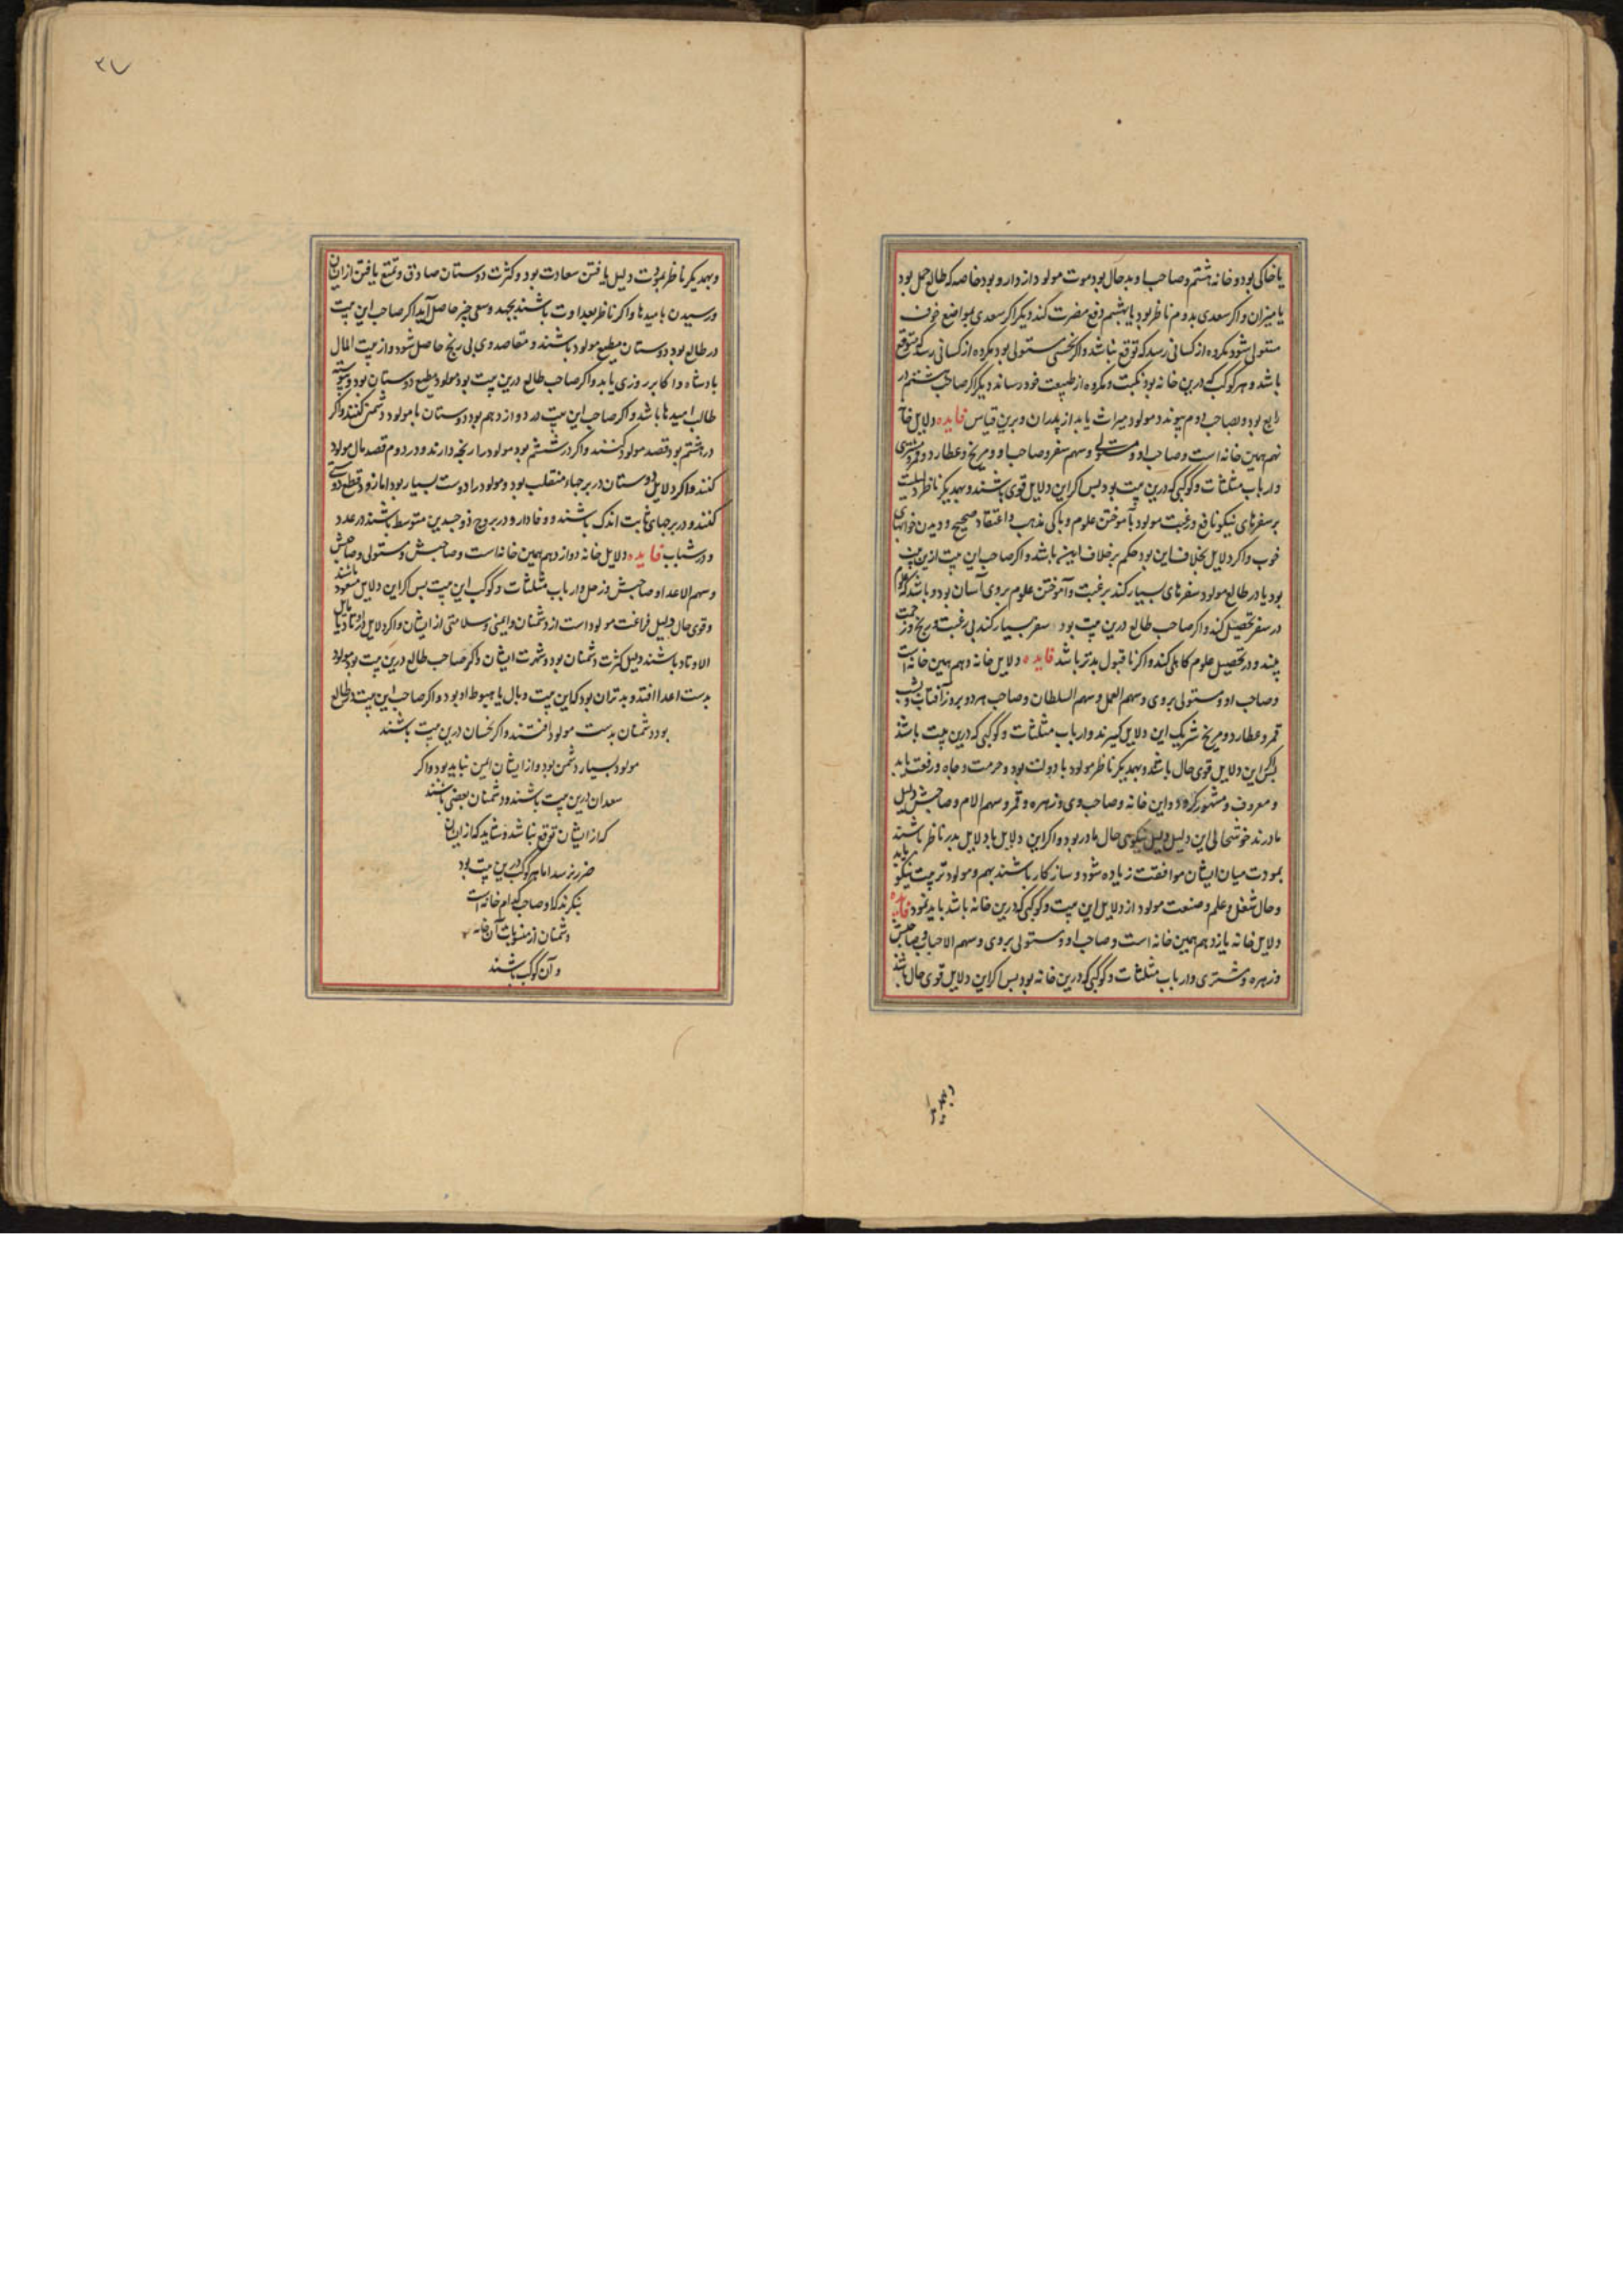 یا خاکی بود و خانه هشتم و صاحب او بدحال بود موت مولود از دارو بود خاصه که طالع حمل بود
یا میزان و اکر سعدی بدوم ناظر بود یا بهشتم دفع مضرت کند دیکر اکر سعدی بمواضع خوف
مستولی شود مکروه از کسانی رسد که توقع نباشد و اکر نحسی مستولی بود مکروه از کسانی رسد که متوقع
باشد و هر کوکب که درین خانه بود نکبت و مکروه از طبیعت خود رساند دیکر اکر صاحب هشتم در
رابع بود و بصاحب دوم پیوندد مولود میراث یابد از پدران و برین قیاس فایده دلایل خانه
نهم همین خانه است و صاحب او و مستولی و سهم سفر و صاحب او و مریخ و عطارد و قمر و مشتری
و ارباب مثلثات و کوکبی که درین بیت بود بس اکر این دلایل قوی باشند و بهمدیکر ناظر دلیلست
بر سفرهای نیکو نافع و رغبت مولود بآموختن علوم و پاکی مذهب و اعتقاد صحیح و دیدن خوابهای
خوب و اکر دلایل بخلاف این بود حکم برخلاف این باشد و اکر صاحب این بیت ازین بیت
بود یا در طالع مولود سفرهای بسیار کند برغبت و آموختن علوم بر وی آسان بود و باشد که علوم
در سفر تحصیل کند و اکر صاحب طالع درین بیت بود سفر بسیار کند بی رغبت و رنج و زحمت
بیند و در تحصیل علوم کاهلی کند و اکر نا قبول بدتر باشد فایده دلایل خانه دهم همین خانه است
و صاحب او و مستولی بر وی و سهم العمل و سهم السلطان و صاحب هر دو بروز آفتاب و بشب
قمر و عطارد و مریخ شریک این دلایل کیرند و ارباب مثلثات و کوکبی که درین بیت باشد
بس اکر این دلایل قوی حال باشد و بهمدیکر ناظر مولود با دولت بود و حرمت و جاه و رفعت یابد
و معروف و مشهور کردد و این خانه و صاحب وی و زهره و قمر و سهم الام و صاحبش دلیل
مادرند خوشحالی این دلیل دلیل نیکوی حال مادر بود و اکر این دلایل با دلایل پدر ناظر باشند
بمودت میان ایشان موافقت زیاده شود و سازکار باشند بهم و مولود تربیت نیکو یابد
و حال شغل و علم و صنعت مولود از دلایل این بیت و کوکبی که درین خانه باشد باید نمود فایده
دلایل خانه یازدهم همین خانه است و صاحب او و مستولی بر وی و سهم الاحباب و صاحبش
و زهره و مشتری و ارباب مثلثات و کوکبی که درین خانه بود بس اکر این دلایل قوی حال باشند
۲۷
و بهمدیکر ناظر بمودت دلیل یافتن سعادت بود و کثرت دوستان صادق و تمتع یافتن از ایشان
و رسیدن بامیدها و اکر ناظر بعداوت باشند بجهد و سعی چیز حاصل آید اکر صاحب این بیت
در طالع بود دوستان مطیع مولود باشند و مقاصد وی بی رنج حاصل شود و از بیت المال
بادشاه و اکابر روزی یابد و اکر صاحب طالع درین بیت بود مولود مطیع دوستان بود و پیوسته
طالب امیدها باشد و اکر صاحب این بیت در دوازدهم بود دوستان با مولود دشمنی کنند و اکر
در هشتم بود قصد مولود کنند و اکر در ششم بود مولود را رنجه دارند و در دوم قصد مال مولود
کنند و اکر دلایل دوستان در برجها منقلب بود و مولود را دوست بسیار بود اما زود قطع دوستی
کنند و در برجهای ثابت اندک باشند و وفادار و در بروج ذو جسدین متوسط باشند در عدد
و در شباب فایده دلایل خانه دوازدهم همین خانه است و صاحبش و مستولی و صاحبش
و سهم الاعدا و صاحبش و زحل و ارباب مثلثات و کوکب این بیت بس اکر این دلایل مسعود باشند
و قوی حال دلیل فراغت مولود است از دشمنان و ایمنی و سلامتی از ایشان و اکر دلایل در اوتاد یا مایل
الاوتاد باشند دلیل کثرت دشمنان بود و شهرت ایشان و اکر صاحب طالع درین بیت بود مولود
بدست اعدا افتد و بدتر آن بود که این بیت وبال یا هبوط او بود و اکر صاحب این بیت در طالع
بود دشمنان بدست مولود افتند و اکر نحسان درین بیت باشند
مولود بسیار دشمن بود و از ایشان ایمن نباید بود و اکر
سعدان درین بیت باشند و دشمنان بعضی باشند
که از ایشان توقع نباشد و شاید که از ایشان
ضرر نرسد اما هر کوکب درین بیت بود
بنکرند که او صاحب کدام خانه است
دشمنان از منسوبات آن خانه
و آن کوکب باشند